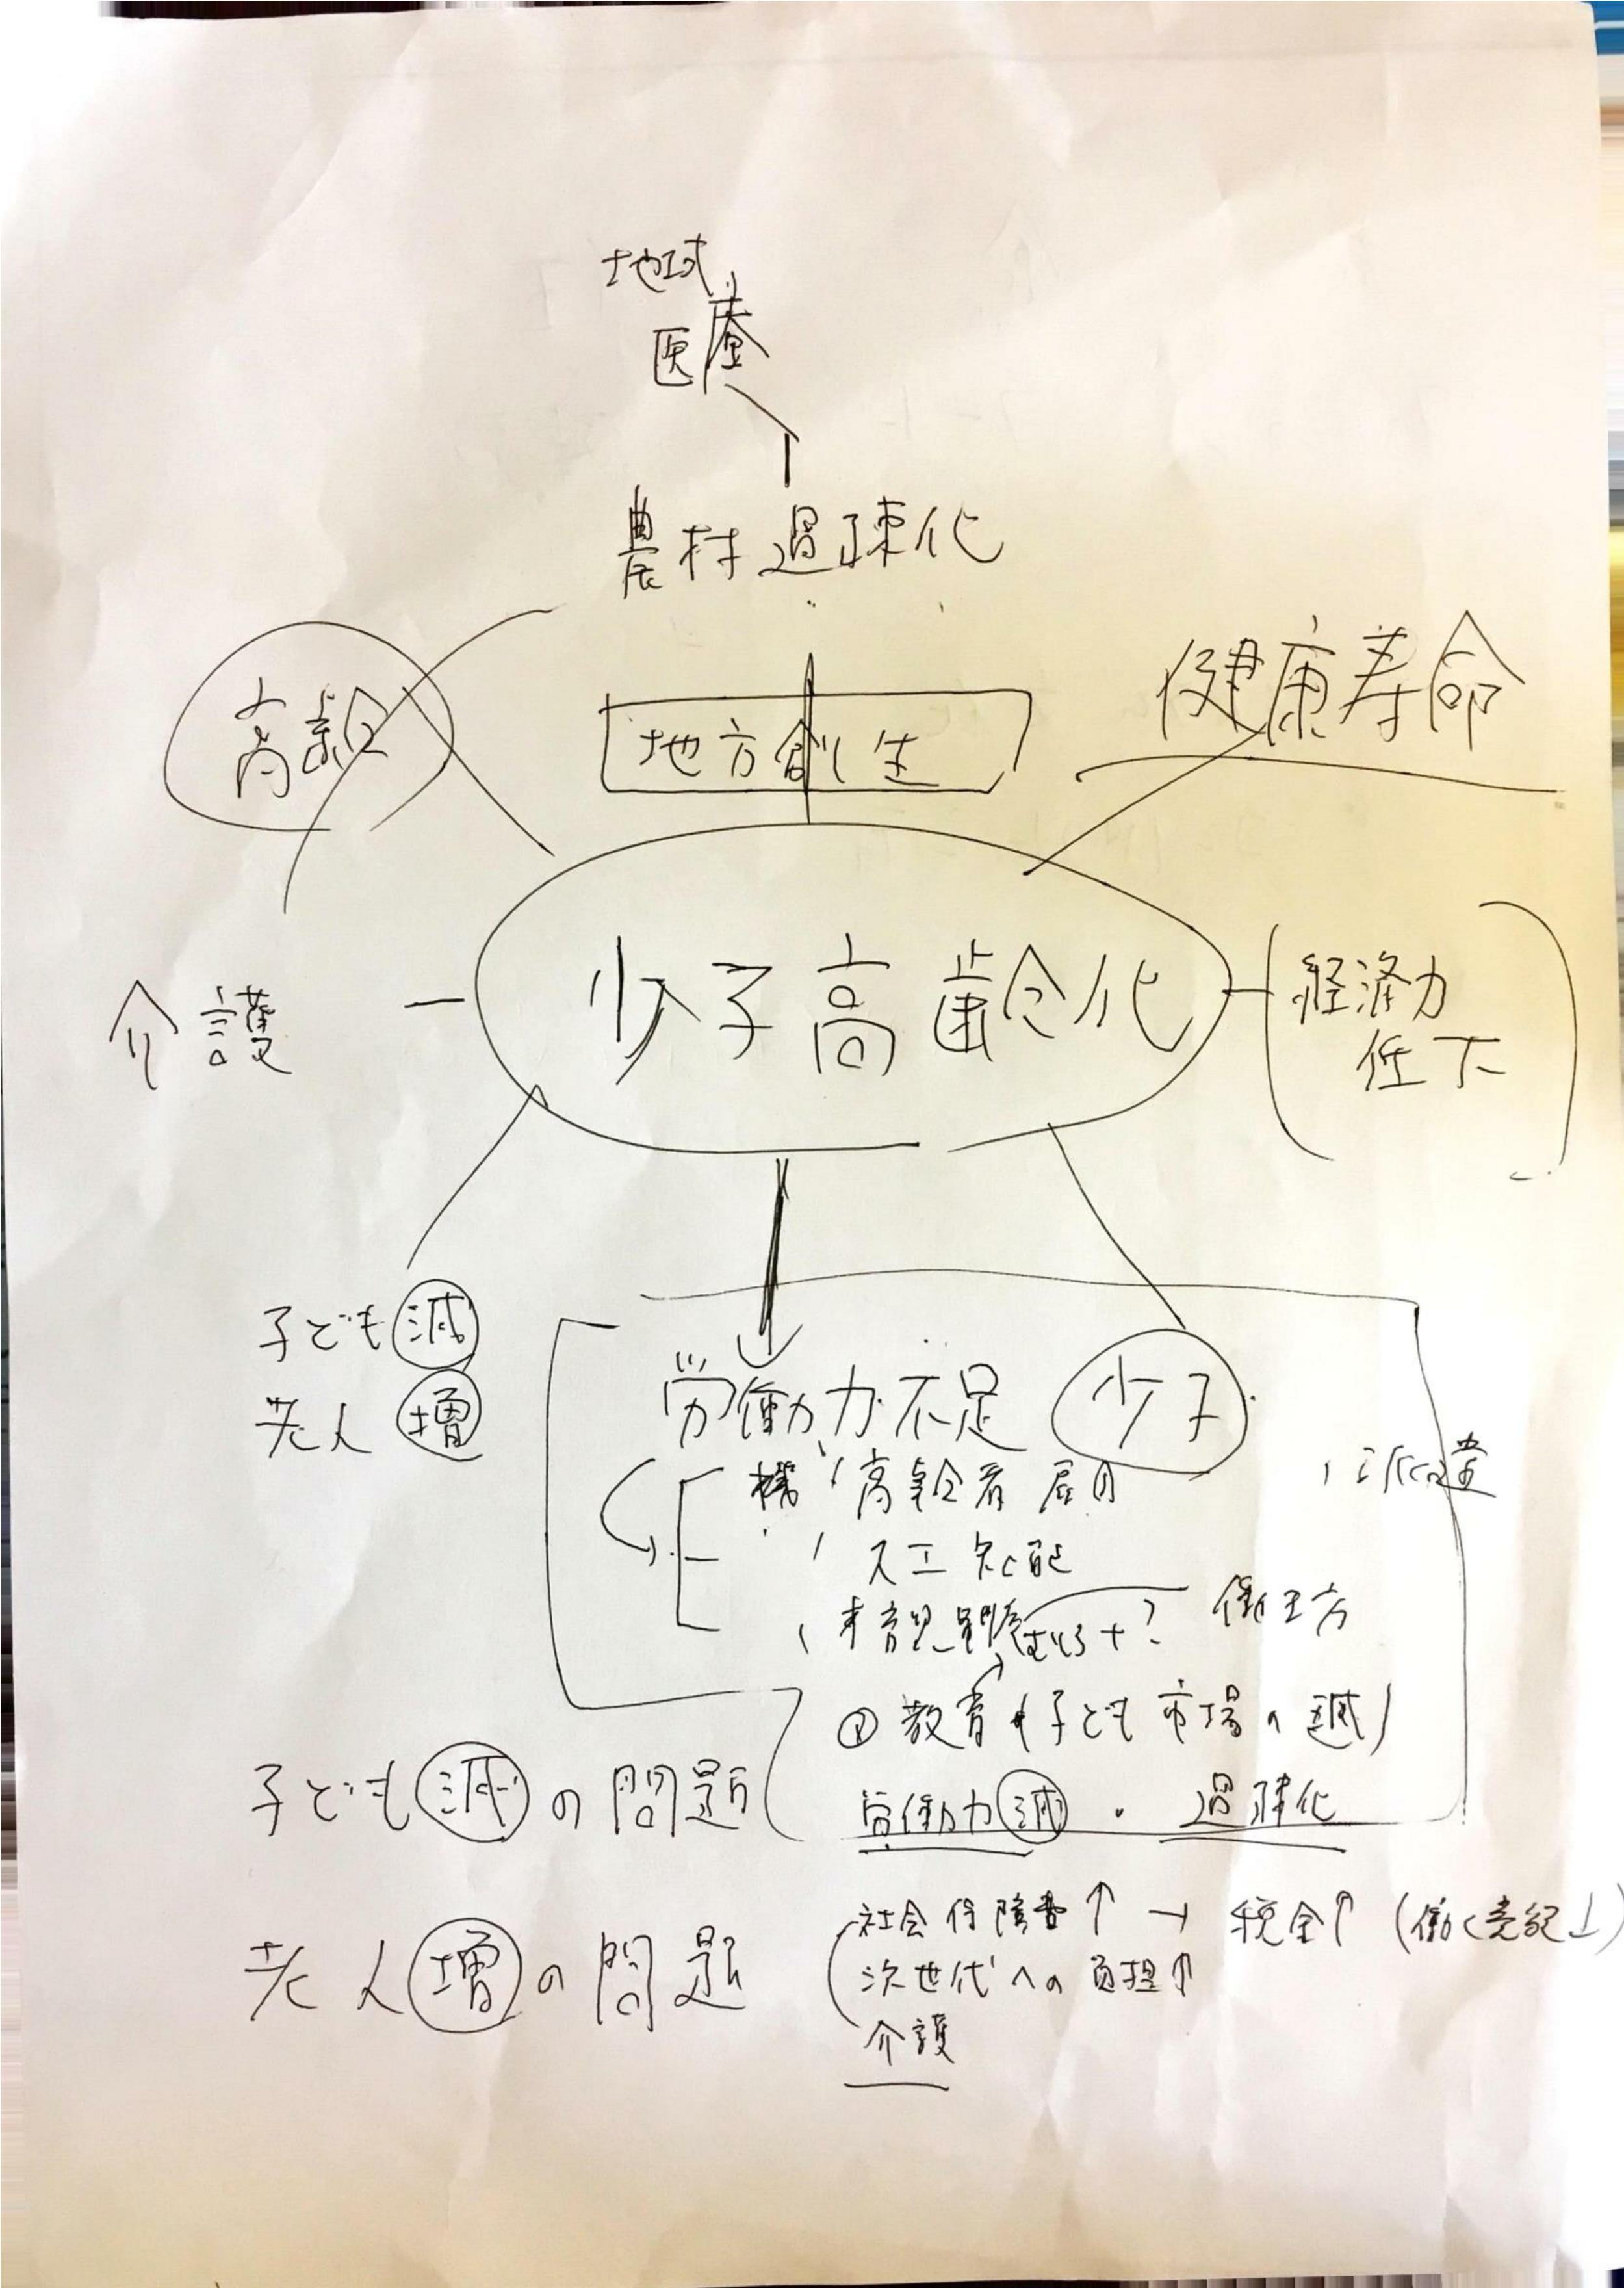 地域
医療
農村過疎化
高齢
地方創生
健康寿命
少子高齢化
介護
経済力
低下
子ども減
老人増
労働力不足
少子
高齢者雇用
派遣
人工知能
働き方
教育(子ども市場の減)
子ども減の問題
労働力減・過疎化
老人増の問題
社会保障費↑→税金↑(働く意欲↓)
次世代への負担↑
介護